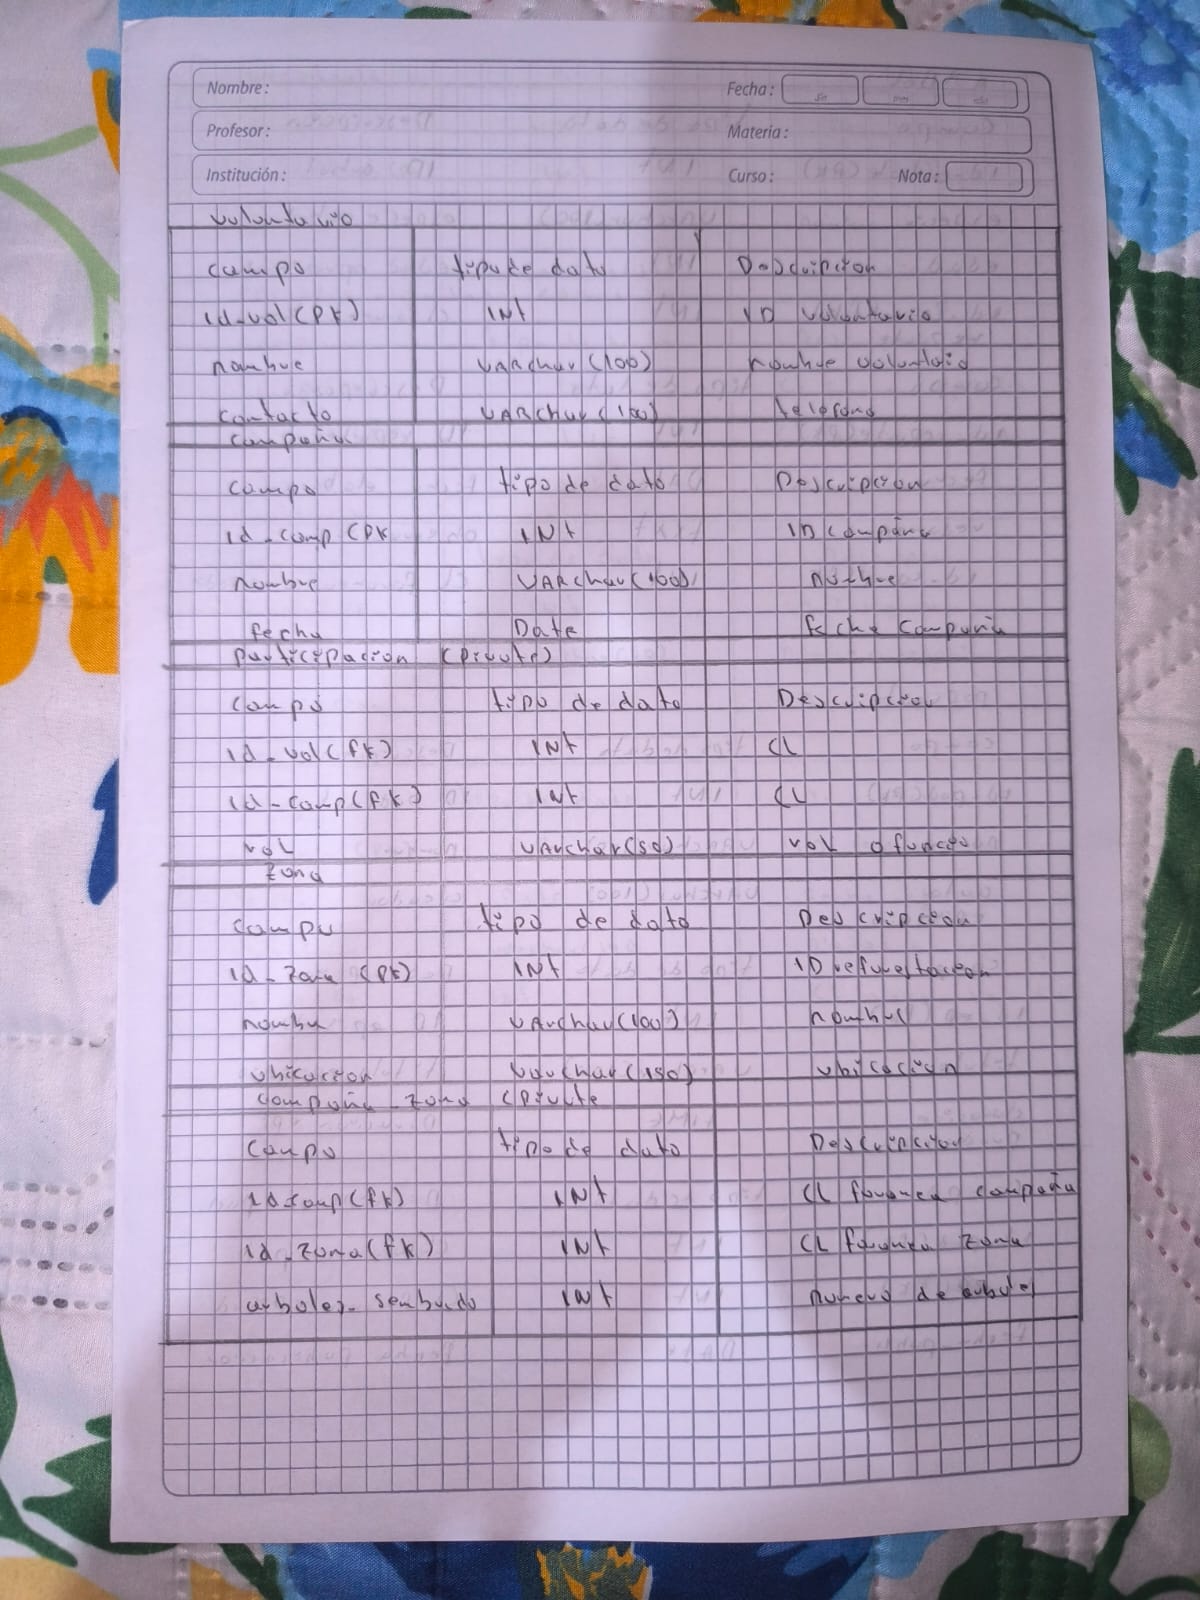 Nombre: Fecha: día mes año
Profesor: Materia:
Institución: Curso: Nota:
voluntario
campo tipo de dato Descripcion
id-vol(PK) INt ID voluntario
nombre VARchar(100) nombre voluntaio
contacto VARchar(100) telefono
campaña
campo tipo de dato Descripcion
id-camp(PK INt ID campaña
nombre VARchar(100) nombre
fecha Date fecha campaña
participacion (pivote)
campo tipo de dato Descripcion
id-vol(fk) INt CL
id-camp(fk) INt CL
rol VARchar(50) rol o funcion
zona
campo tipo de dato Descripcion
id-zona (PK) INt ID reforestacion
nombre VArchar(100) nombre
ubicacion Varchar(150) ubicacion
campaña-zona (pivote
campo tipo de dato Descripcion
id-camp(fk) INt CL foranea campaña
id-zona(fk) INt CL foranea zona
arboles-sembrado INt numero de arboles